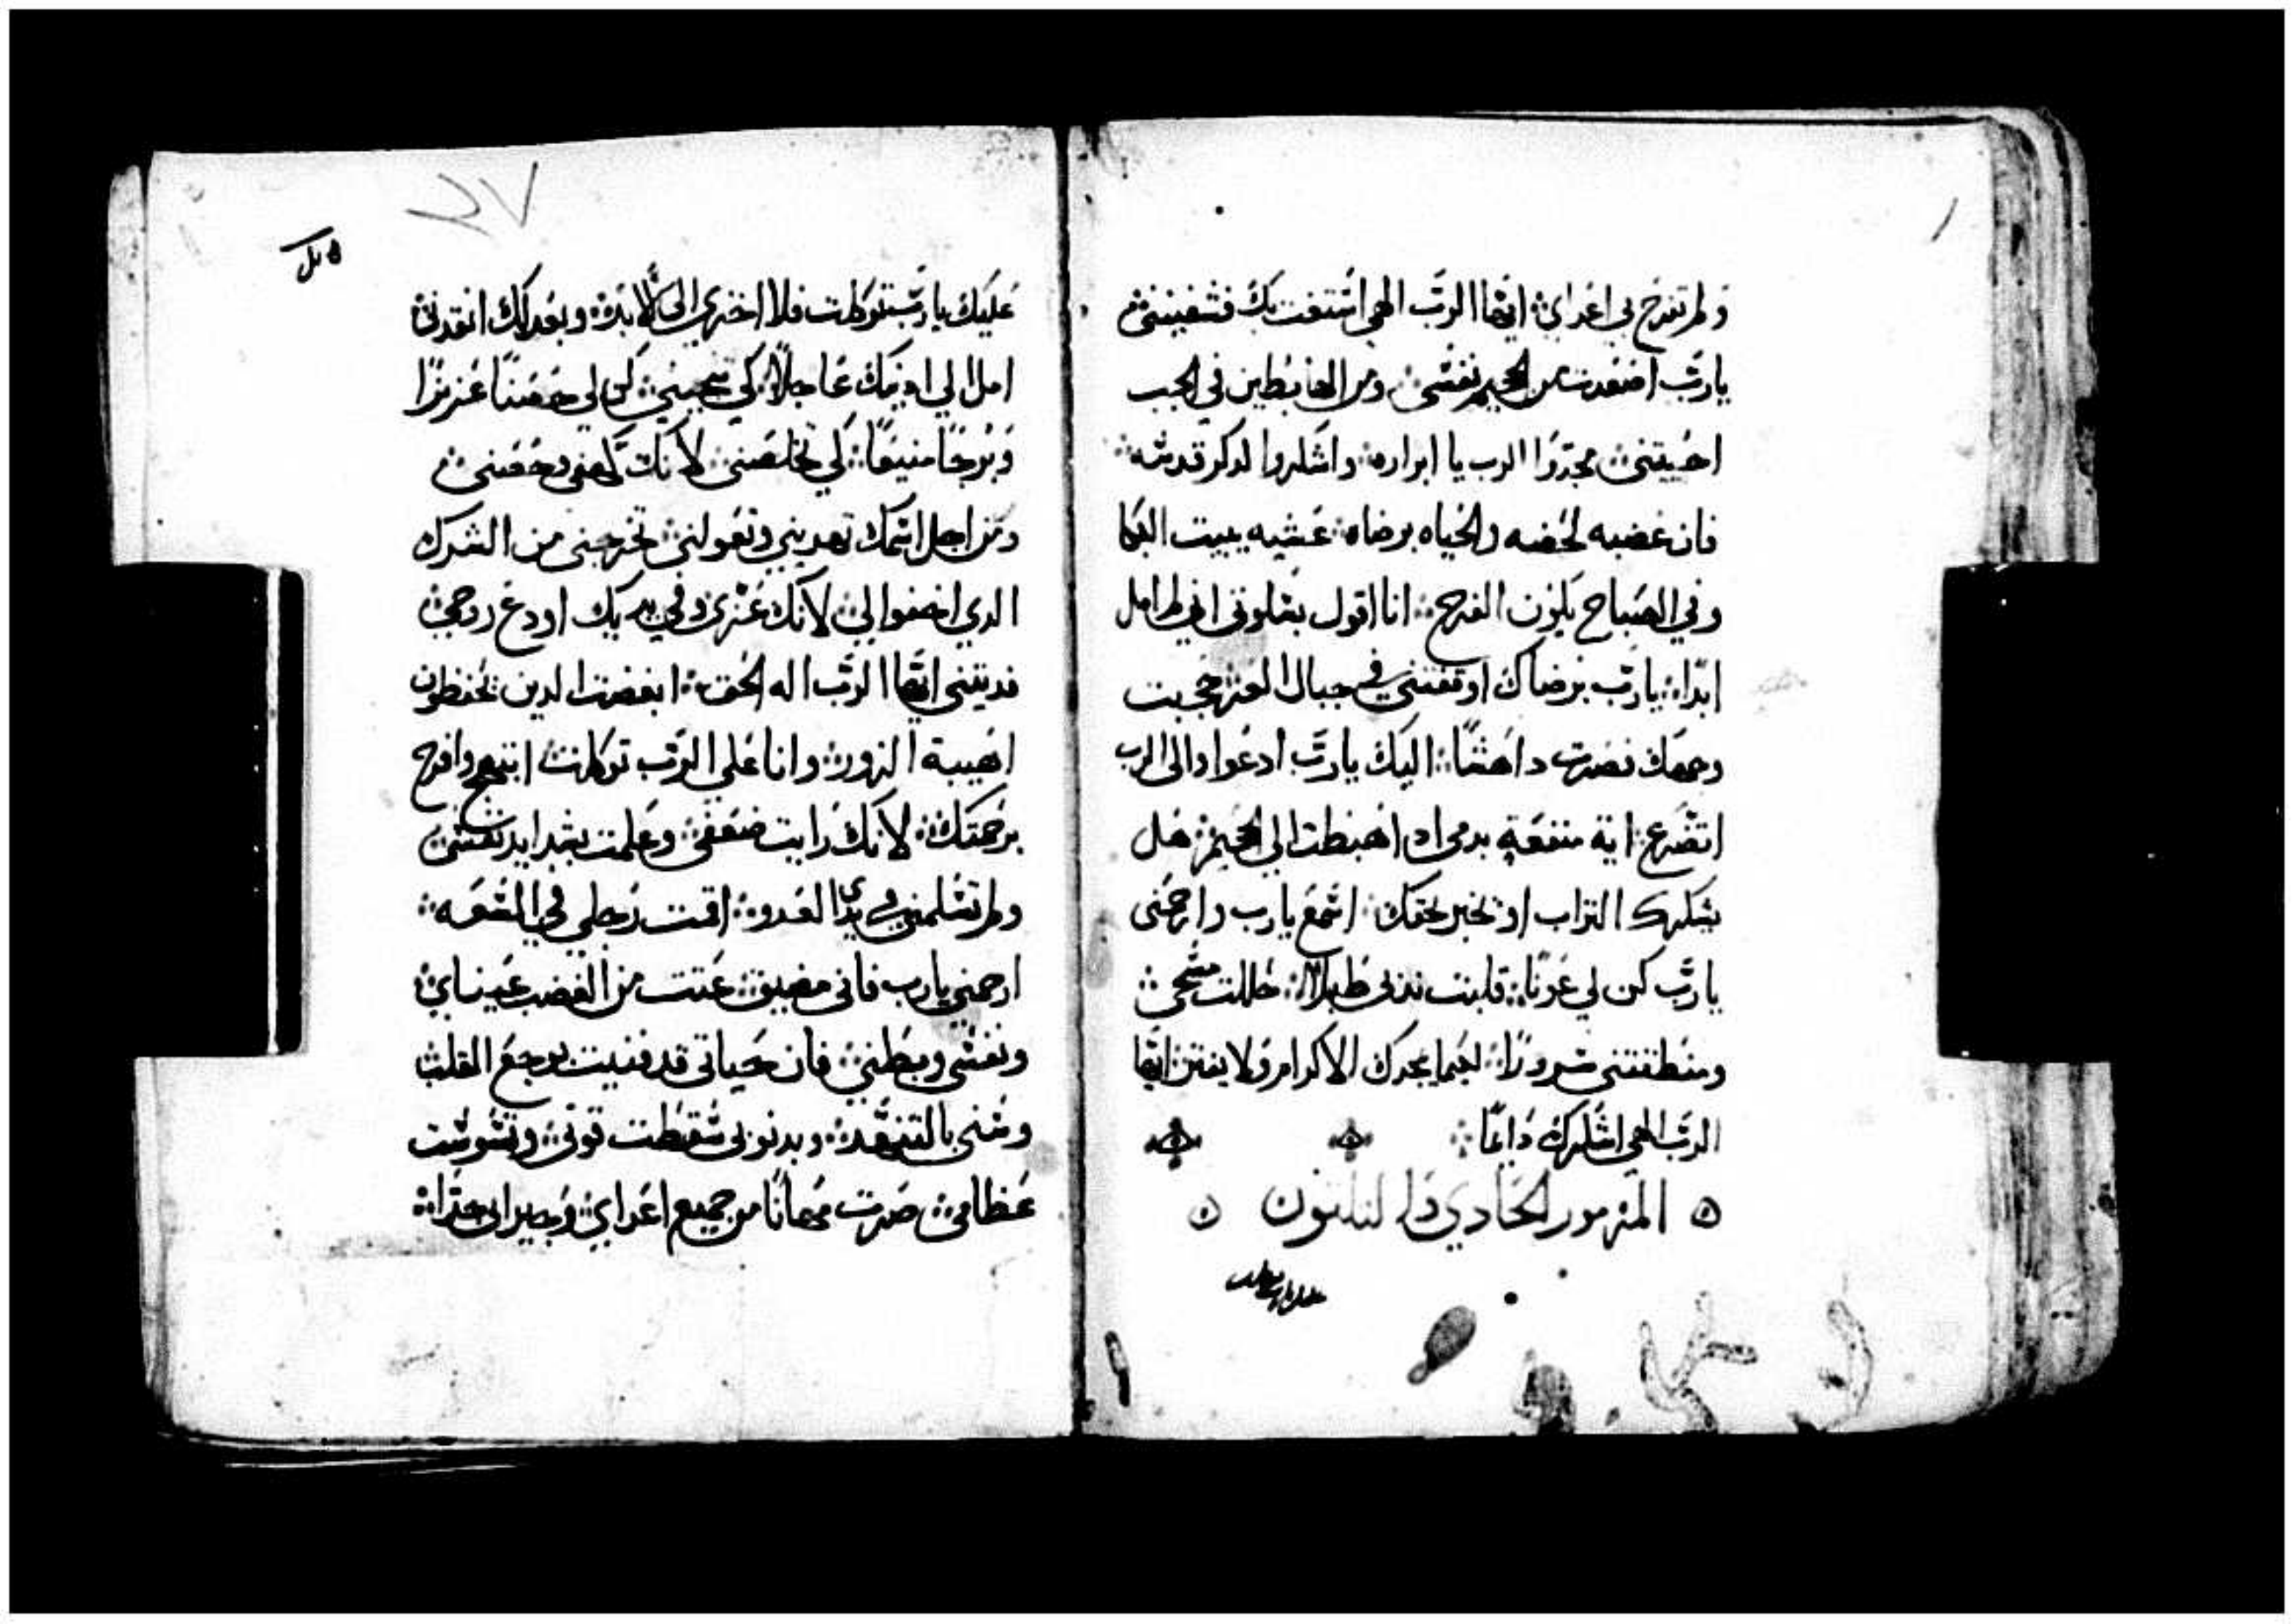 ولم تفرح بي اعداي ايها الرب الهي استغت بك فشفيتني
يارب اصعدت من الجحيم نفسي ومن الهابطين في الجب
احييتني مجدوا الرب يا ابراره واشكروا لدكر قدسه
فان غضبه لحضه والحياه برضاه عشيه يبيت البكا
وفي الصباح يكون الفرح انا اقول بسلوتي اني لم امل
ابدا يارب برضاك اوقفتني في جبال العز حجبت
وجهك فصرت داهشا اليك يارب ادعوا والى الرب
اتضرع اية منفعة بدمي اد اهبطت الى الجحيم هل
يشكرك التراب او يخبر بحقك اسمع يارب وارحمني
يارب كن لي عونا قلبت ندبي طبلا حللت مسحي
ومنطقتني سرورا لكيما يمجدك الاكرام ولا يفتن ايها
الرب الهي اشكرك دايما
المزمور الحادي والتلتون
عليك يارب توكلت فلا اخزي الى الابد وبعدلك انقدني
امل الي ادنك عاجلا كي تنجيني كن لي حصنا عزيزا
وبرجا منيعا لكي تخلصني لانك كهفي وحصني
ومن اجل اسمك تهديني وتعولني تخرجني من الشرك
الدي اخفوا لي لانك عزي وفي يديك اودع روحي
فديتني ايها الرب اله الحق ابغضت الدين يحفظون
اهيبة الزور وانا على الرب توكلت ابتهج وافرح
برحمتك لانك رايت ضعفي وعلمت بشدايد نفسي
ولم تسلمني في يدي العدو اقمت رجلي في السعه
ارحمني يارب فاني مضيق عتت من الغضب عيناي
ونفسي وبطني فان حياتي قد فنيت بوجع القلب
وسني بالتنهد وبدنوبي سقطت قوتي وتشوشت
عظامي صرت مهانا من جميع اعداي وجيراني جدا